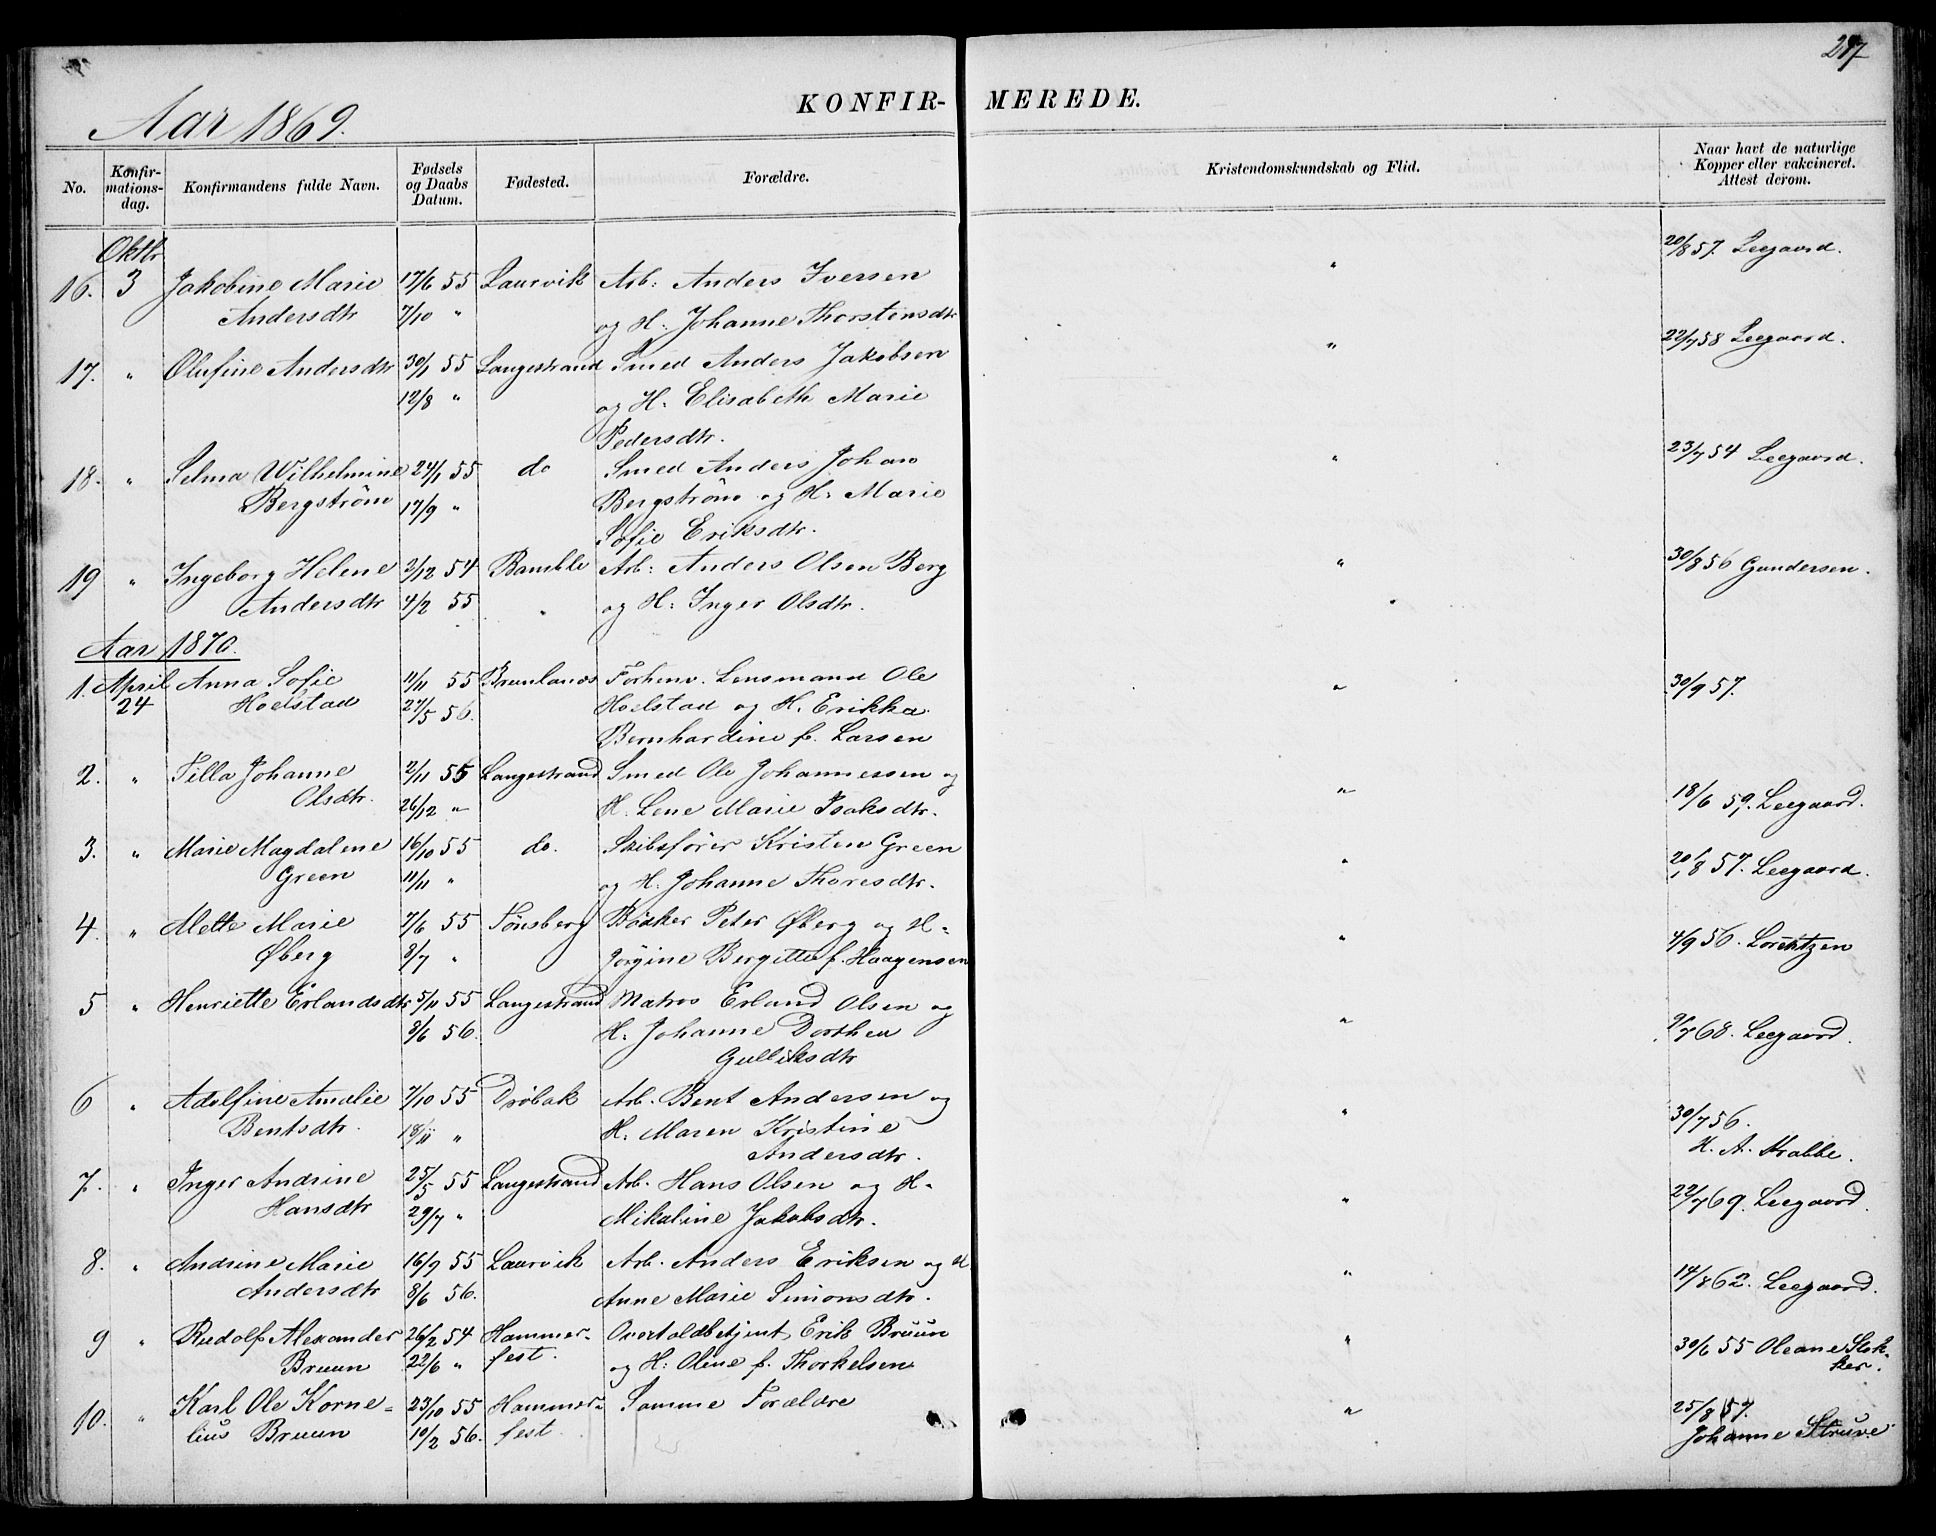 217
Aar 1869.
KONFIR- MEREDE.
No. Konfir-mations-dag. Konfirmandens fulde Navn. Fødsels og Daabs Datum. Fødested. Forældre. Kristendomskundskab og Flid. Naar havt de naturlige Kopper eller vakcineret. Attest derom.
Oktbr
16. 3 Jakobine Marie 17/6 55 Laurvik Arb: Anders Iversen " 20/8 57. Leegaard.
Andersdtr 7/10 " og H. Johanne Thorstensdtr
17. " Olufine Andersdtr 30/1 55 Langestrand Smed Anders Jakobsen " 22/7 58 Leegaard.
12/8 " og H. Elisabeth Marie
Pedersdtr.
18. " Selma Wilhelmine 24/1 55 do Smed Anders Johan " 23/7 54 Leegaard.
Bergstrøm 17/9 " Bergstrøm og H. Marie
Sofie Eriksdtr.
19 " Ingeborg Helene 2/12 54 Bamble Arb: Anders Olsen Berg " 30/8 56 Gundersen.
Andersdtr 4/2 55 " og H: Inger Olsdtr.
Aar 1870.
1. April Anna Sofie 11/11 55 Brunlanæs Forhenv. Lensmand Ole " 30/9 57.
24 Hoelstad 27/5 56. Hoelstad og H. Erikka
Bernhardine f. Larsen
2. " Tilla Johanne 2/11 55 Langestrand Smed Ole Johannessen og " 18/6 59. Leegaard.
Olsdtr. 26/12 " H. Lene Marie Isaksdtr.
3. " Marie Magdalene 16/10 55 do. Skibsfører Kristen Green " 20/8 57. Leegaard.
Green 11/11 " og H. Johanne Thoresdtr.
4. " Mette Marie 7/6 55 Tønsberg Bødker Peter Øberg og H. " 4/9 56. Lorentzen
Øberg 8/7 " Jørgine Bergitte f. Haagensen
5 " Henriette Erlandsdtr 5/11 55 Langestrand Matros Erland Olsen og " 9/7 68. Leegaard.
8/6 56. H. Johanne Dorthea
Gulliksdtr
6 " Adolfine Amalie 7/10 55 Drøbak Arb. Bent Andersen og " 30/7 56.
Bentsdtr. 18/11 " H. Maren Kristine H. A. Krabbe.
Andersdtr.
7. " Inger Andrine 25/5 55 Langestrand Arb. Hans Olsen og H. " 22/7 69. Leegaard.
Hansdtr 29/7 " Mikaline Jakobsdtr.
8. " Andrine Marie 16/9 55 Laurvik Arb. Anders Eriksen og H " 14/8 62. Leegaard.
Andersdtr 8/6 56. Anne Marie Simonsdtr.
9 " Rudolf Alexander 26/2 54 Hammer- Overtoldbetjent Erik Bruun " 30/6 55 Oleane Stok-
Bruun 22/6 " fest. og H: Oline f. Thorkelsen ker.
10. " Karl Ole Korne- 23/10 55 Hammer- Samme Forældre " 25/8 57.
lius Bruun 10/2 56. fest. Johanne Struve